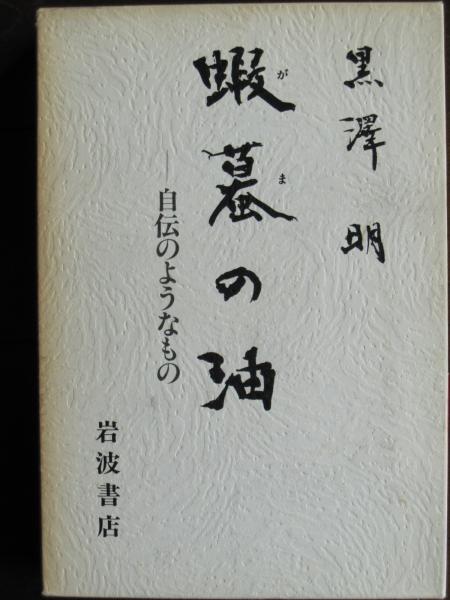 黒澤明
蝦蟇の油
がま
—自伝のようなもの
岩波書店